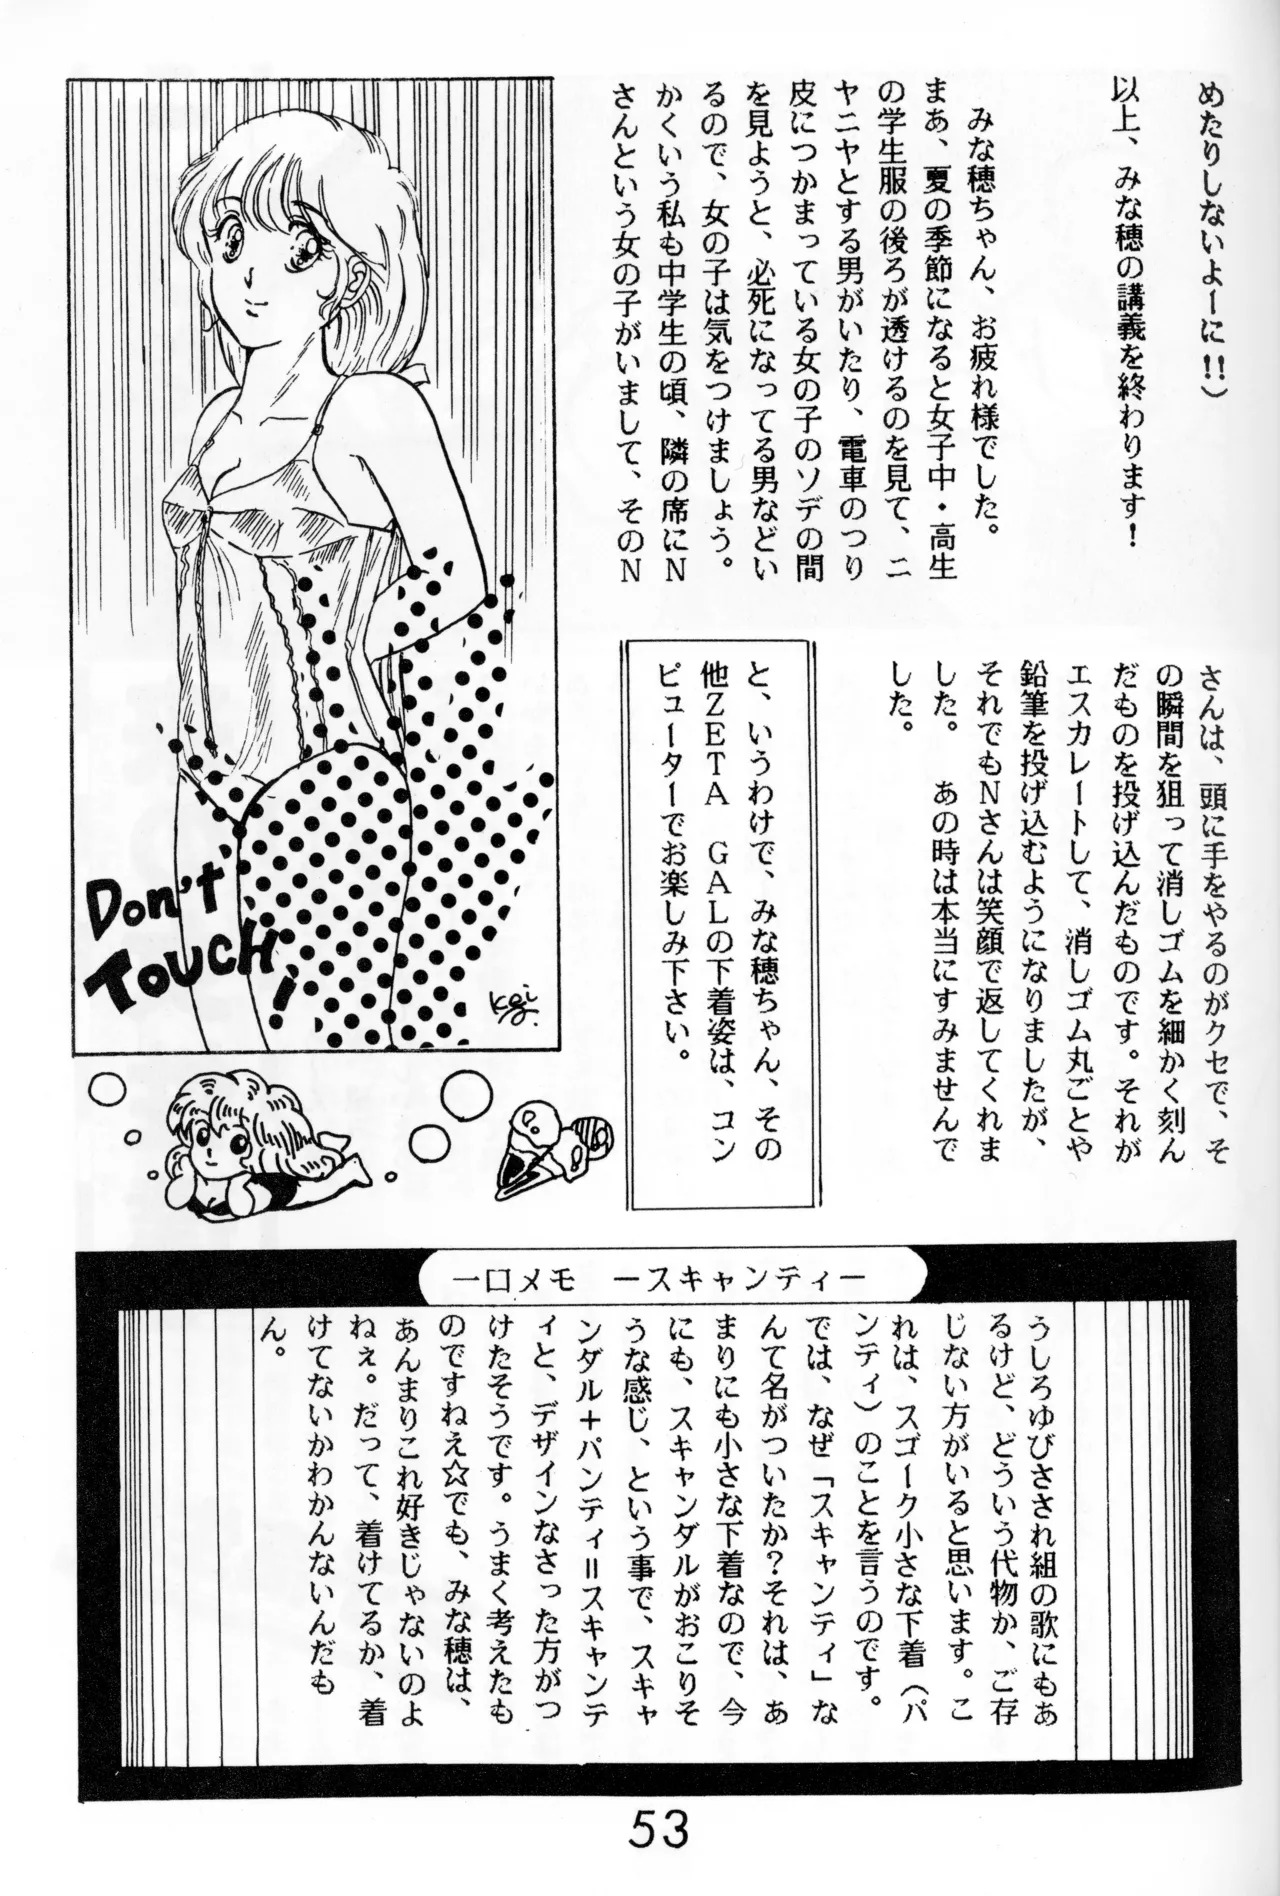 めたりしないよーに!!)
以上、みな穂の講義を終わります!
みな穂ちゃん、お疲れ様でした。
まあ、夏の季節になると女子中・高生
の学生服の後ろが透けるのを見て、ニ
ヤニヤとする男がいたり、電車のつり
皮につかまっている女の子のソデの間
を見ようと、必死になってる男などい
るので、女の子は気をつけましょう。
かくいう私も中学生の頃、隣の席にN
さんという女の子がいまして、そのN
さんは、頭に手をやるのがクセで、そ
の瞬間を狙って消しゴムを細かく刻ん
だものを投げ込んだものです。それが
エスカレートして、消しゴム丸ごとや
鉛筆を投げ込むようになりましたが、
それでもNさんは笑顔で返してくれま
した。 あの時は本当にすみませんで
した。
と、いうわけで、みな穂ちゃん、その
他ZETA GALの下着姿は、コン
ピューターでお楽しみ下さい。
Don't
TOUCH!
Kei
一口メモ ースキャンティー
うしろゆびさされ組の歌にもあ
るけど、どういう代物か、ご存
じない方がいると思います。こ
れは、スゴーク小さな下着(パ
ンティ)のことを言うのです。
では、なぜ「スキャンティ」な
んて名がついたか?それは、あ
まりにも小さな下着なので、今
にも、スキャンダルがおこりそ
うな感じ、という事で、スキャ
ンダル+パンティ=スキャンテ
ィと、デザインなさった方がつ
けたそうです。うまく考えたも
のですねえ☆でも、みな穂は、
あんまりこれ好きじゃないのよ
ねぇ。だって、着けてるか、着
けてないかわかんないんだも
ん。
53